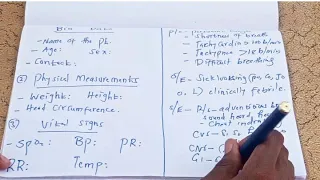 Bio Data
- Name of the pt:
- Age: Sex:
- Contact:
② Physical Measurements
- Weight: Height:
- Head Circumference:
③ Vital signs
- SpO2: BP: PR:
RR: Temp:
P/- Shortness of breath
- Tachycardia
- Tachypnoe >
- Difficult breathing
O/E - Sick looking
clinically febrile.
S/E - R/S - adventitious
sound heard,
- Chest indra
CVS - S1, S2
CNS -
GI -